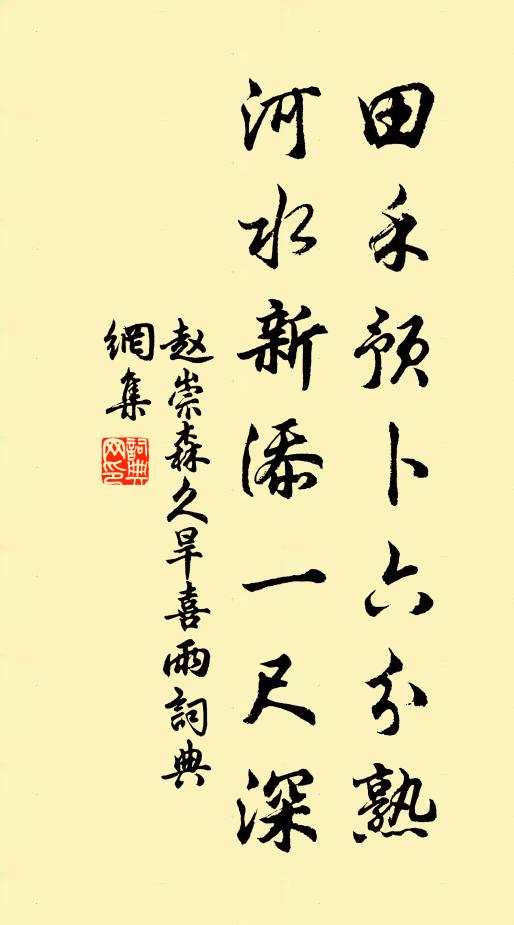 田禾預卜六分熟
河水新添一尺深
赵崇森久旱喜雨詞典
網集
詞典网印